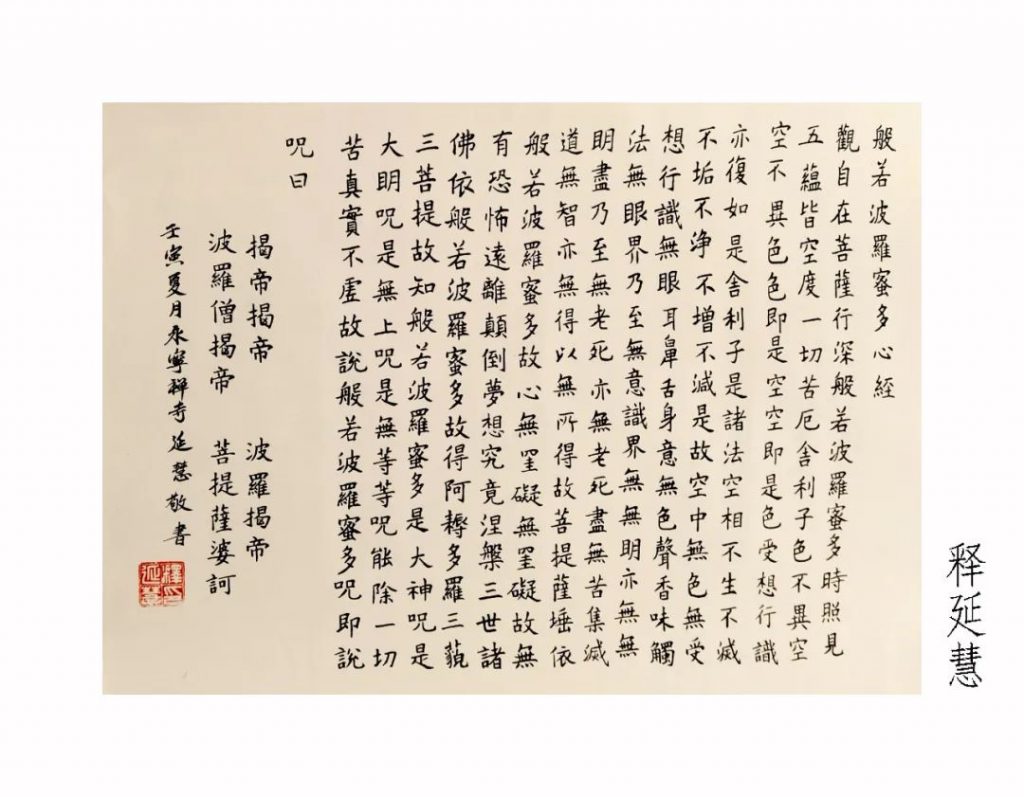 般若波羅蜜多心經
觀自在菩薩行深般若波羅蜜多時照見
五蘊皆空度一切苦厄舍利子色不異空
空不異色色即是空空即是色受想行識
亦復如是舍利子是諸法空相不生不滅
不垢不淨不增不減是故空中無色無受
想行識無眼耳鼻舌身意無色聲香味觸
法無眼界乃至無意識界無無明亦無無
明盡乃至無老死亦無老死盡無苦集滅
道無智亦無得以無所得故菩提薩埵依
般若波羅蜜多故心無罣礙無罣礙故無
有恐怖遠離顛倒夢想究竟涅槃三世諸
佛依般若波羅蜜多故得阿耨多羅三藐
三菩提故知般若波羅蜜多是大神呪是
大明呪是無上呪是無等等呪能除一切
苦真實不虛故說般若波羅蜜多呪即說
呪曰
揭帝揭帝 波羅揭帝
波羅僧揭帝 菩提薩婆訶
壬寅夏月永寧禪寺延慧敬書
释延慧